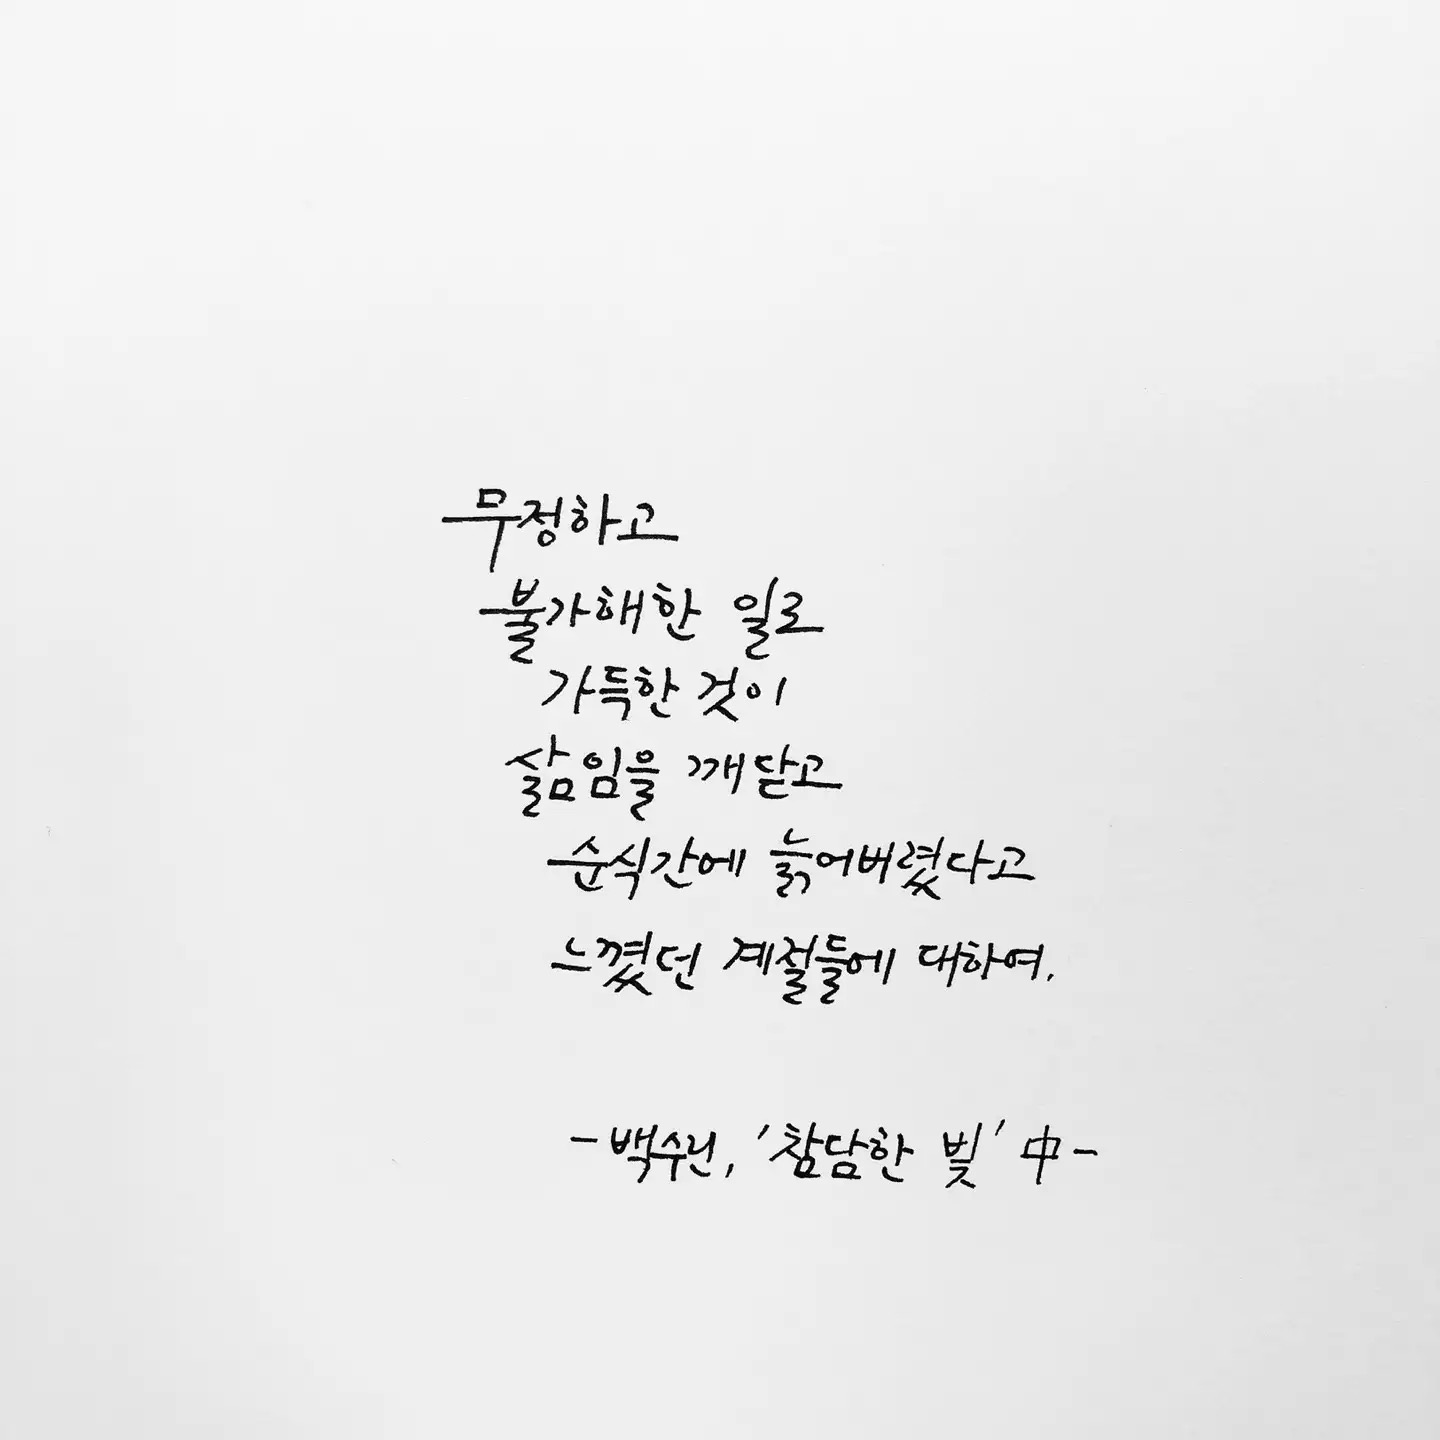 무정하고
불가해한 일로
가득한 것이
삶임을 깨닫고
순식간에 늙어버렸다고
느꼈던 계절들에 대하여.
-백수린, '참담한 빛' 中-